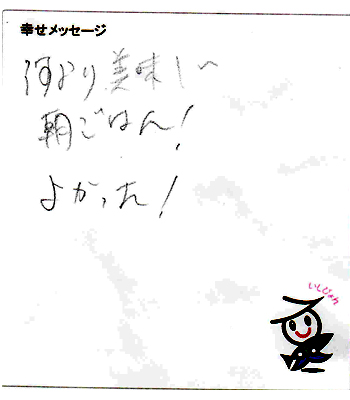 幸せメッセージ
何より美味しい
朝ごはん!
よかった!
いしぴょん